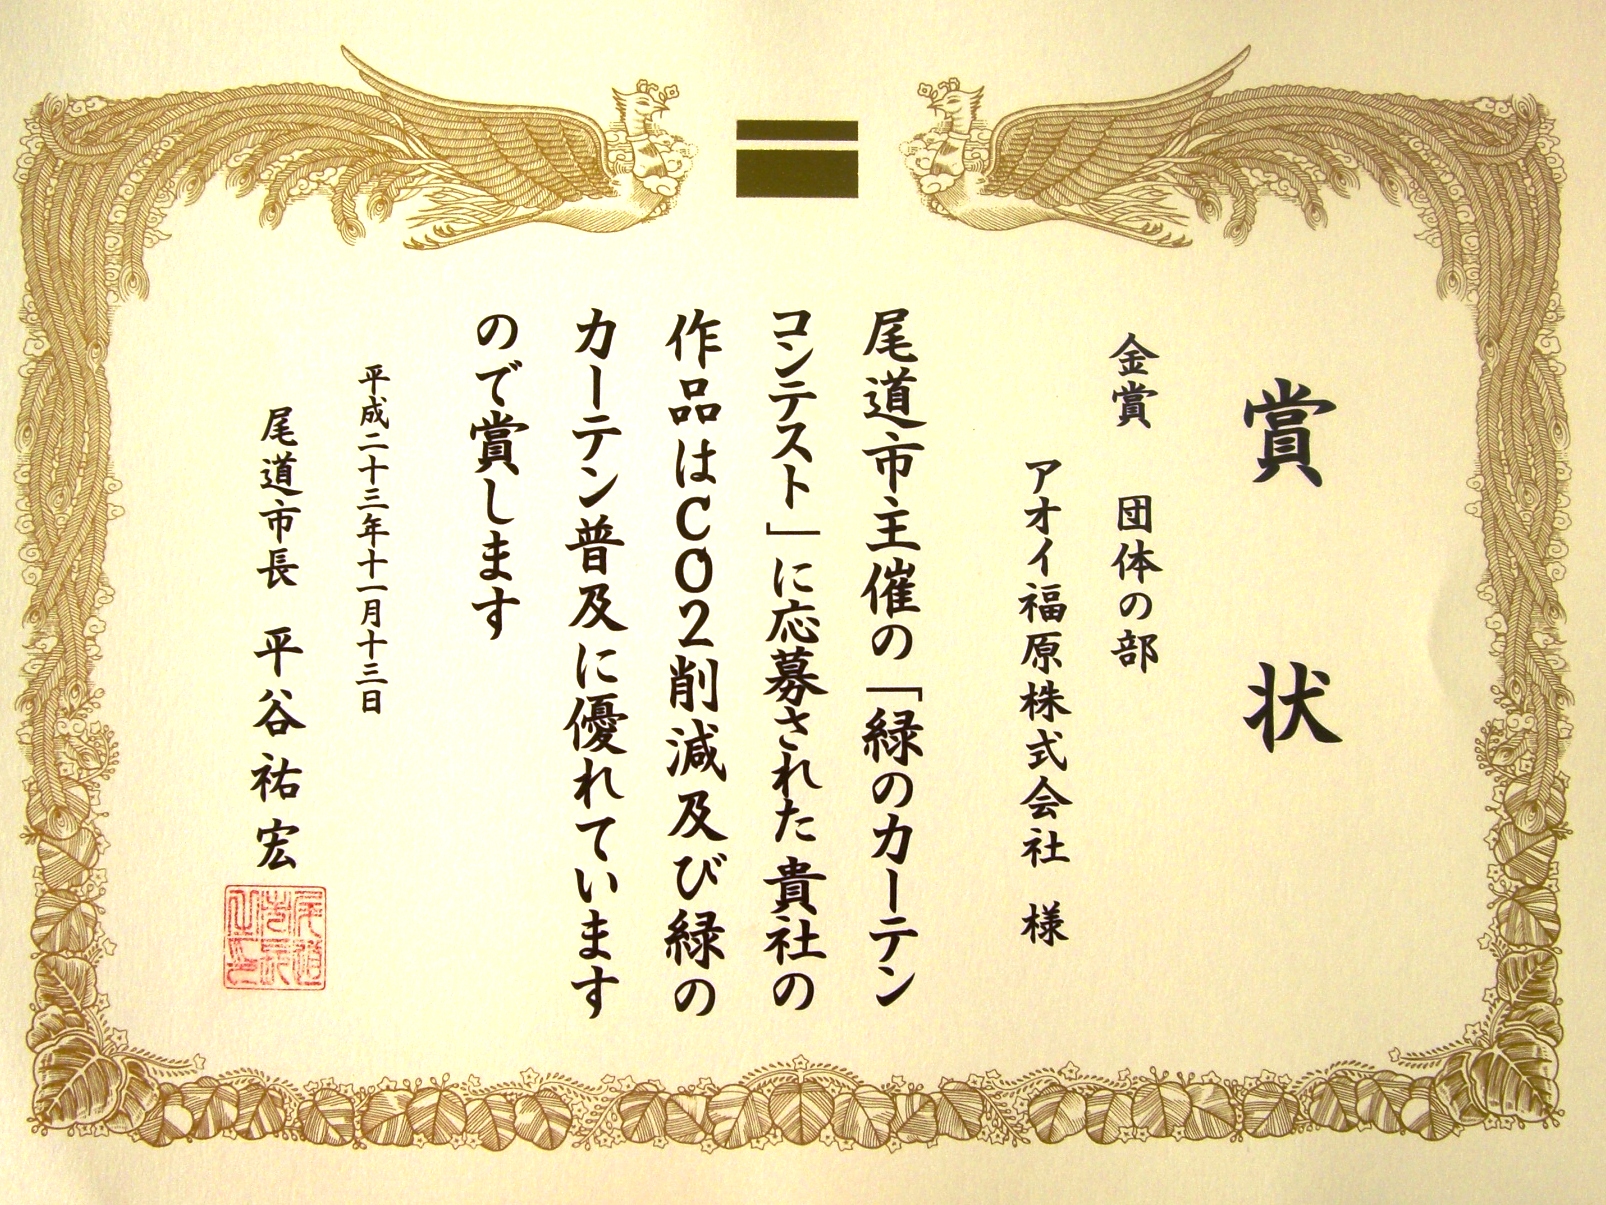 賞状
金賞　団体の部
アオイ福原株式会社　様
尾道市主催の「緑のカーテン
コンテスト」に応募された貴社の
作品はCO2削減及び緑の
カーテン普及に優れています
ので賞します
平成二十三年十一月十三日
尾道市長　平谷祐宏